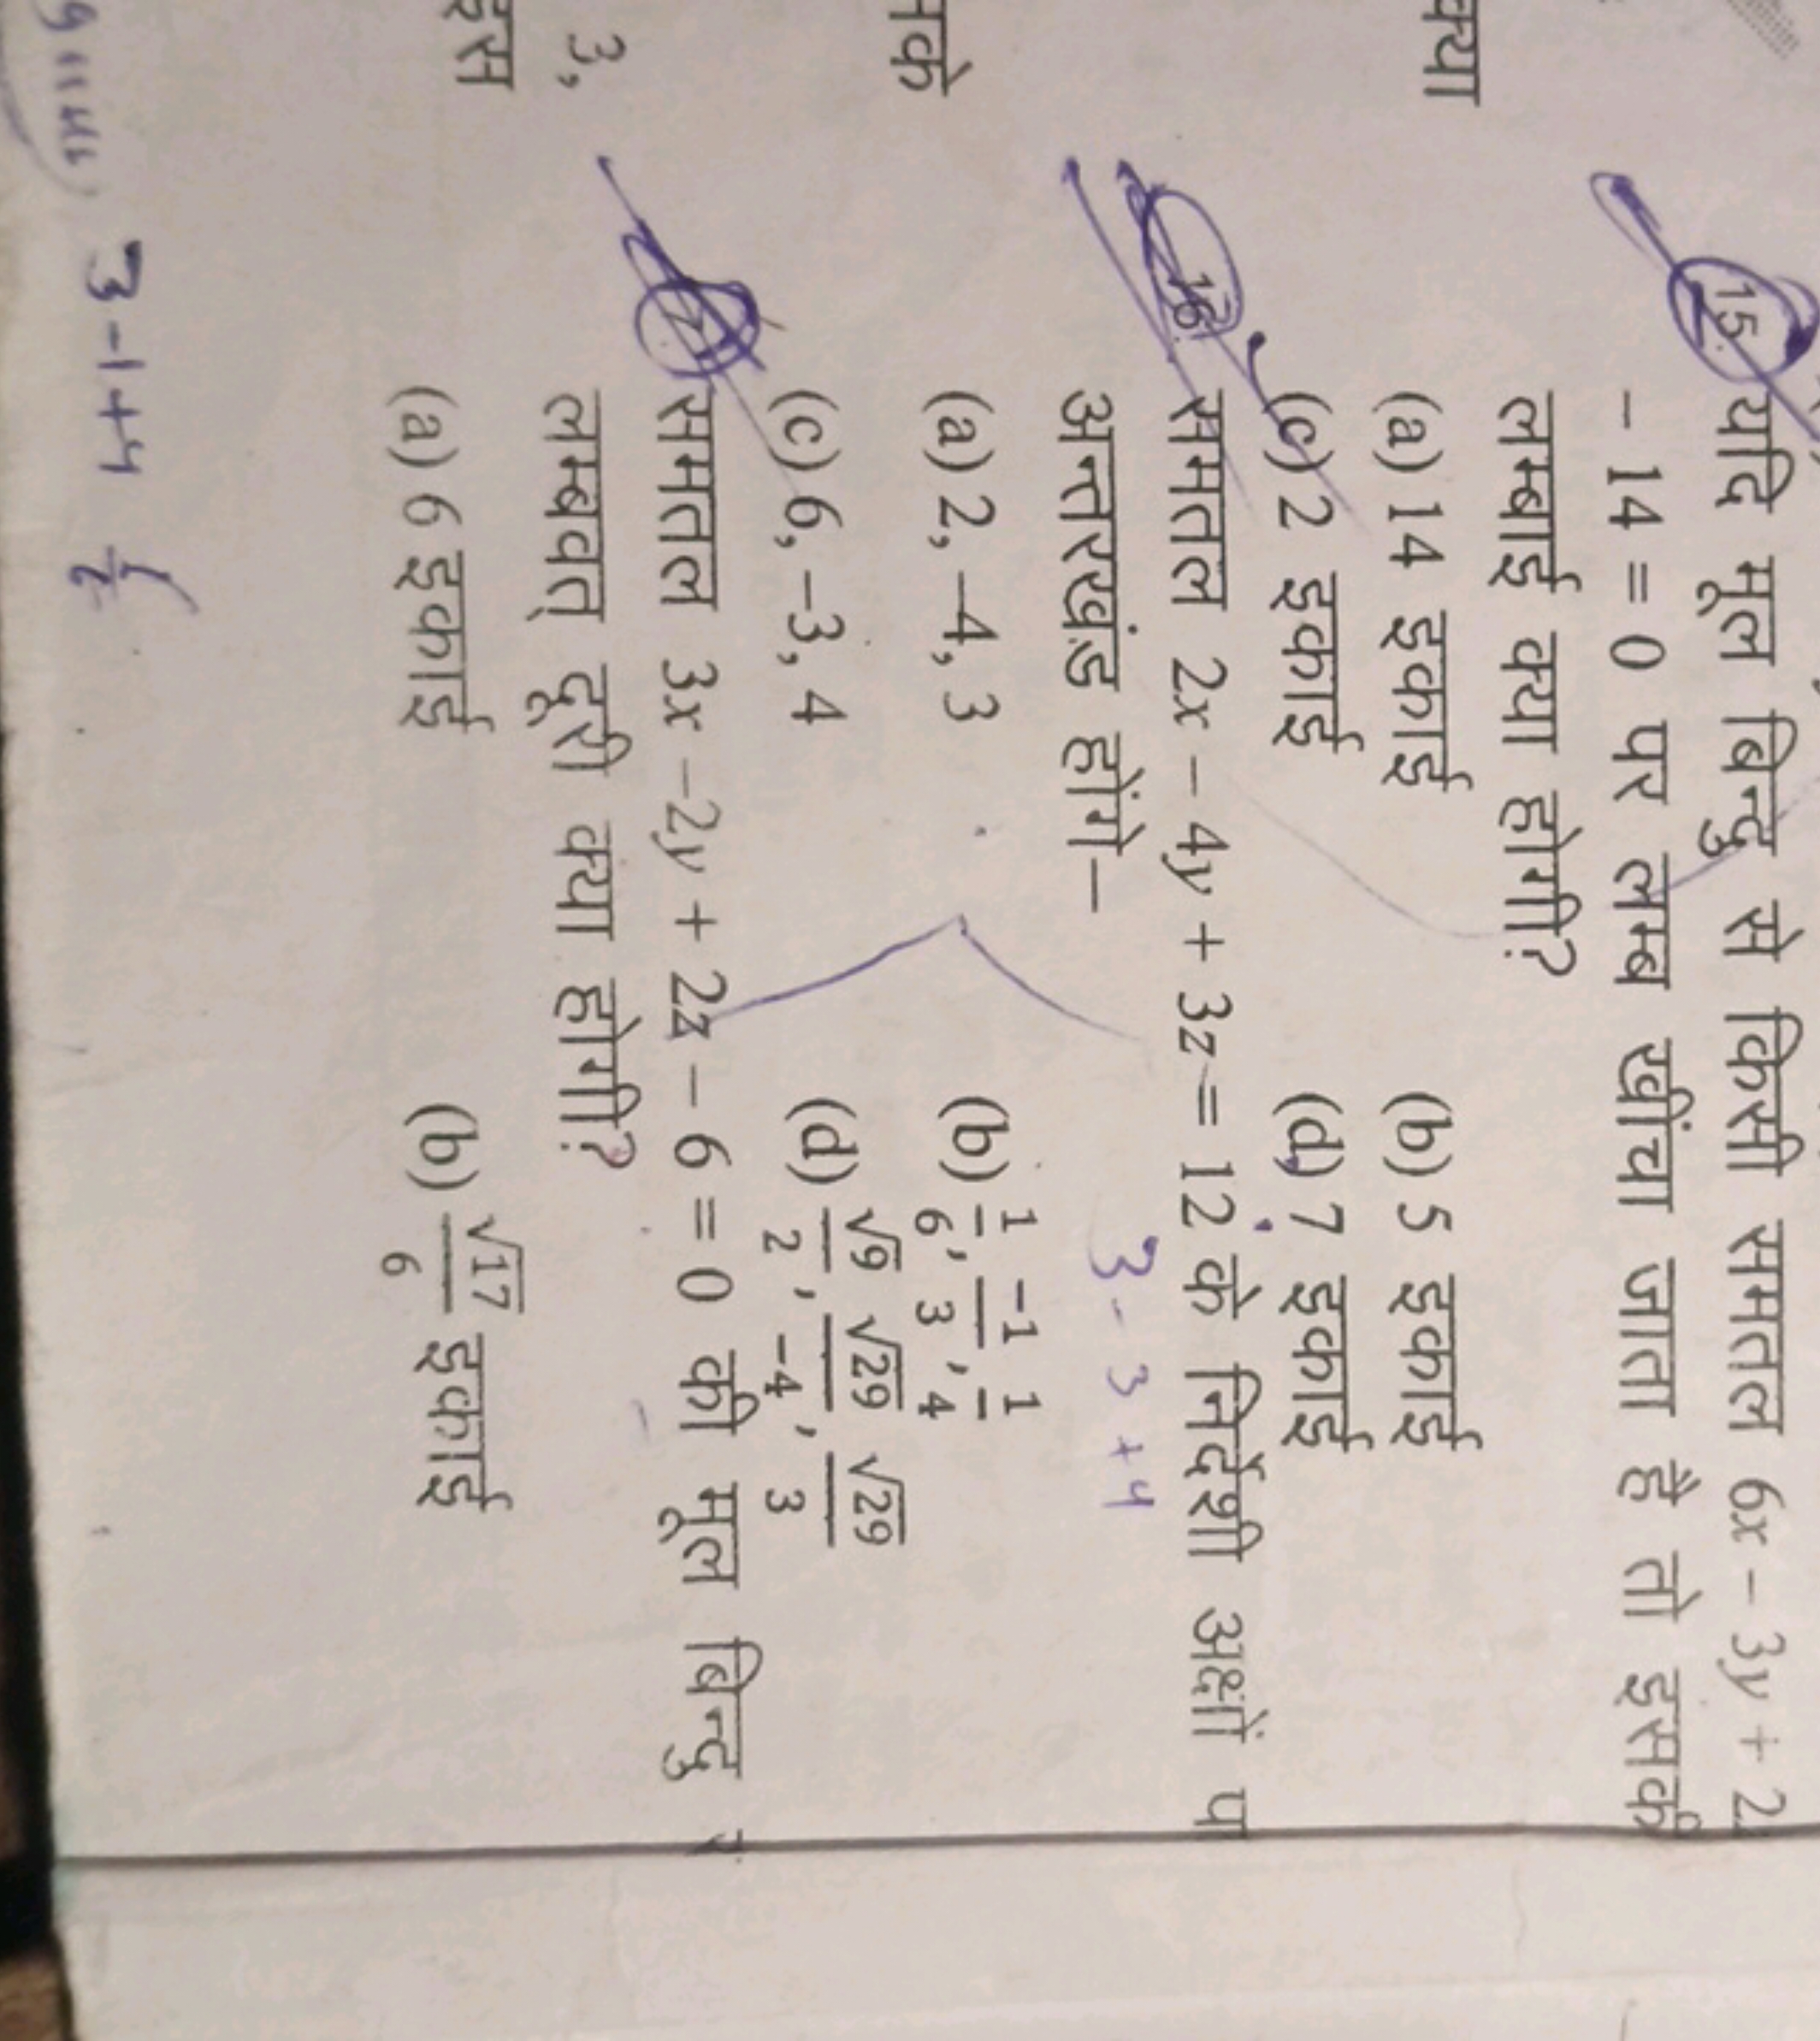 15. यदि मूल बिन्दु से किसी समतल 6x – 3y + 2
– 14 = 0 पर लम्ब खींचा जाता है तो इसकी
लम्बाई क्या होगी?
(a) 14 इकाई (b) 5 इकाई
(c) 2 इकाई (d) 7 इकाई
16. समतल 2x – 4y + 3z = 12 के निर्देशी अक्षों प
अन्तरखंड होंगे–
3 - 3 + 4
(a) 2, –4, 3 (b) 1/6, -1/3, 1/4
(c) 6, –3, 4 (d) √9/2, √29/-4, √29/3
समतल 3x –2y + 2z – 6 = 0 की मूल बिन्दु
लम्बवत् दूरी क्या होगी?
(a) 6 इकाई (b) √17/6 इकाई
क्या
3,
इस
3 -1 +4